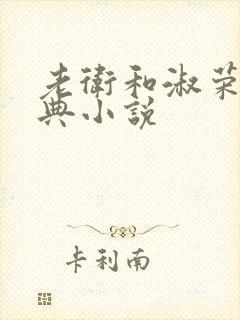 老衛和淑荣
典小说
卡利南